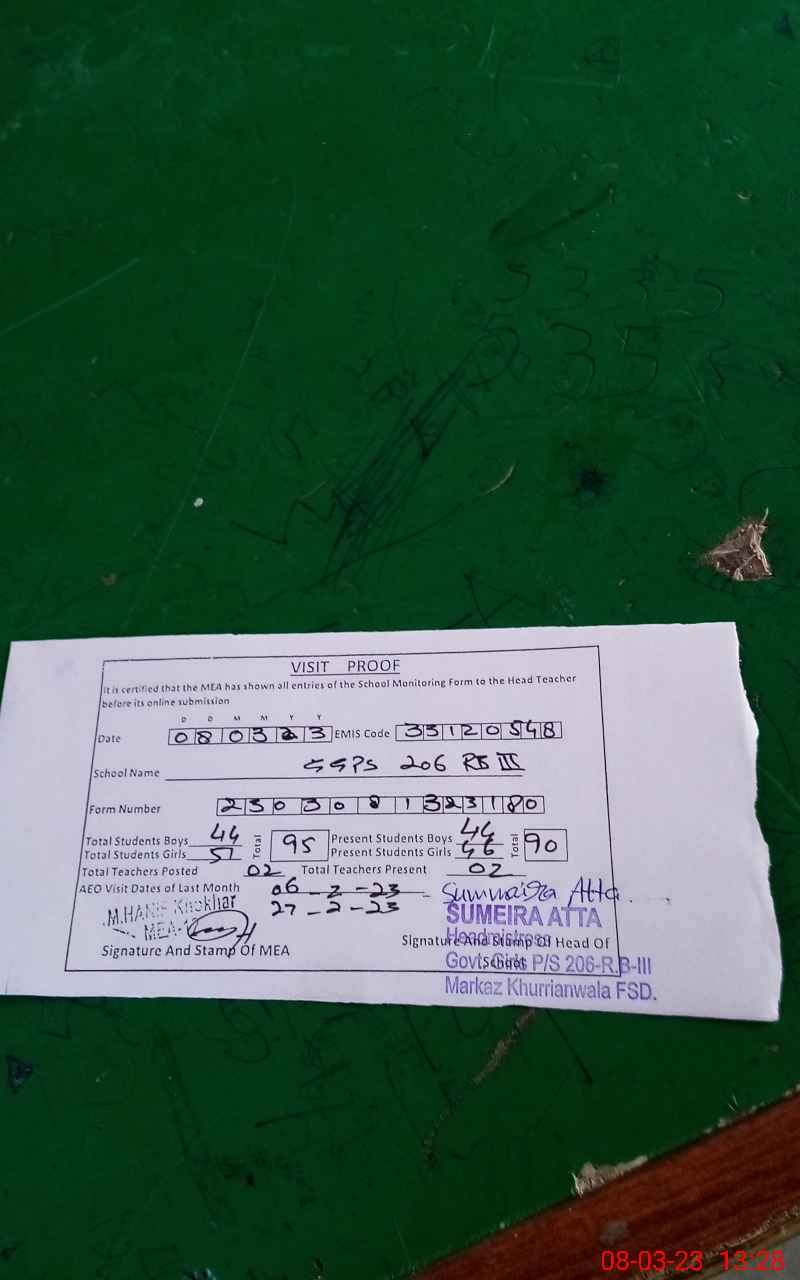 VISIT PROOF
It is certified that the MEA has shown all entries of the School Monitoring Form to the Head Teacher
before its online submission
D D M M Y Y
Date 0 8 0 3 2 3 EMIS Code 3 3 1 2 0 5 4 8
School Name GGPS 206 RB III
Form Number 2 3 0 3 0 8 1 3 2 3 1 8 0
Total Students Boys 44 Total 95 Present Students Boys 44 Total 90
Total Students Girls 51 Present Students Girls 46
Total Teachers Posted 02 Total Teachers Present 02
AEO Visit Dates of Last Month 06-2-23
27-2-23
Summaira Atta
M.HANIF Khokhar
MEA
SUMEIRA ATTA
Headmistress
Signature And Stamp Of MEA
Signature And Stamp Of Head Of
School
Govt. Girls P/S 206-R.B-III
Markaz Khurrianwala FSD.
08-03-23 13:28